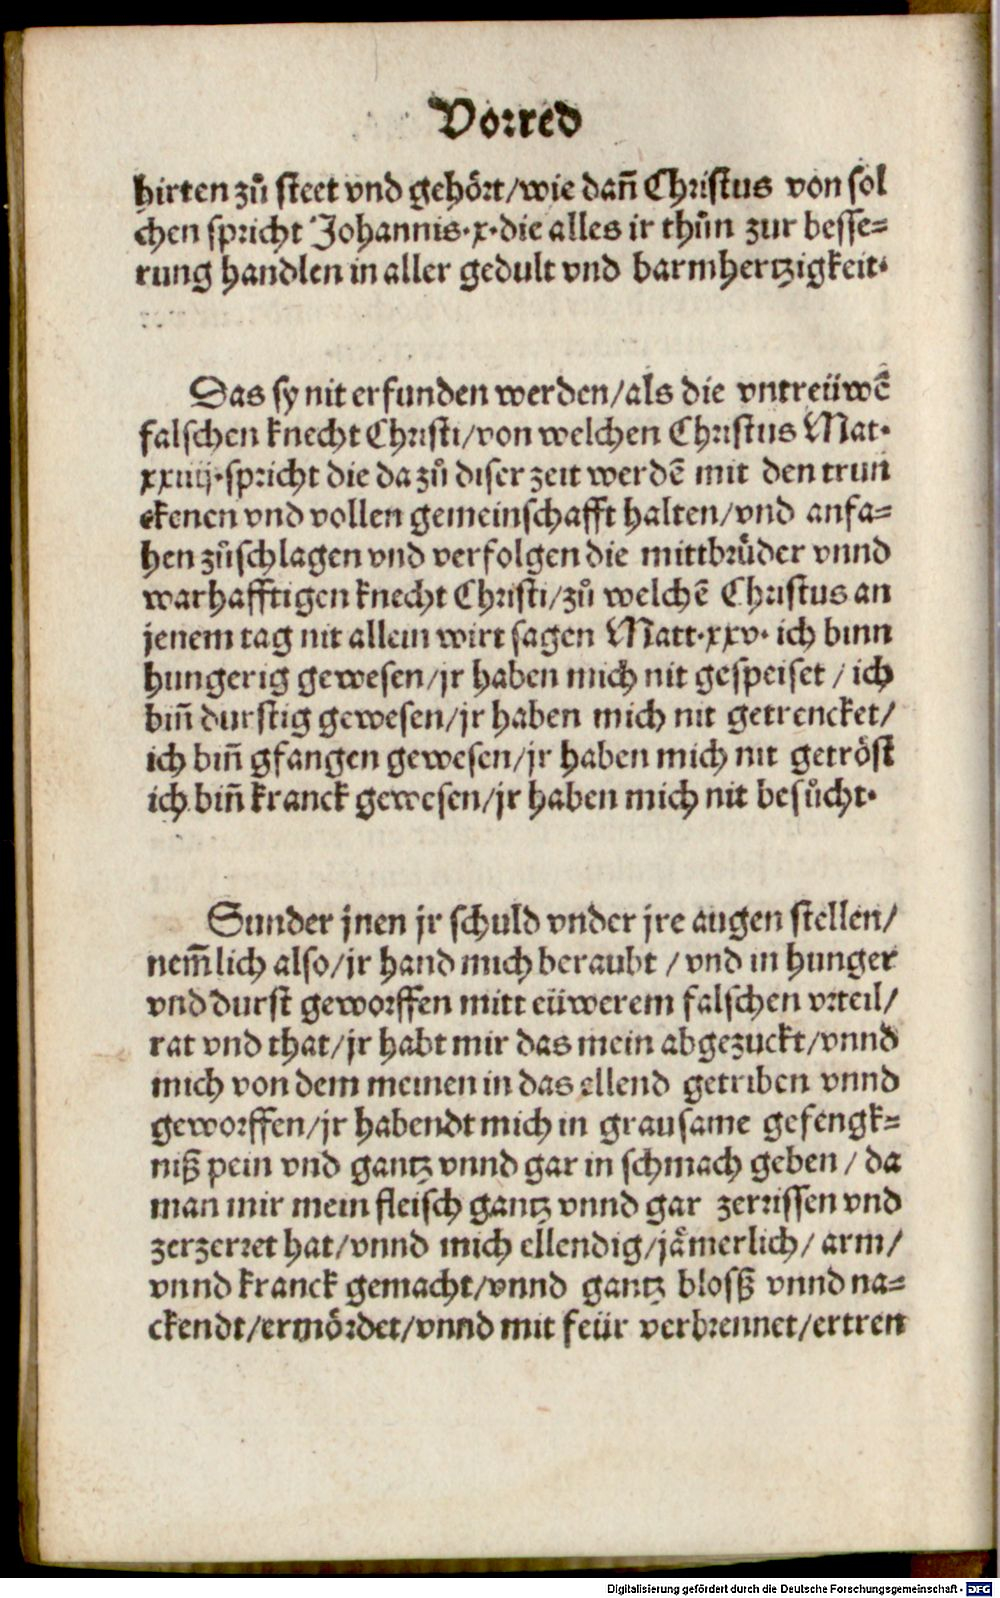 Vorred
hirten zů steet vnd gehört/wie dañ Christus von sol
chen spricht Johannis·x·die alles ir thůn zur besse=
rung handlen in aller gedult vnd barmhertzigkeit·
Das sy nit erfunden werden/als die vntreüwē
falschen knecht Christi/von welchen Christus Mat·
xxiiij·spricht die da zů diser zeit werdē mit den trun
ckenen vnd vollen gemeinschafft halten/vnd anfa=
hen zůschlagen vnd verfolgen die mittbrůder vnnd
warhafftigen knecht Christi/zů welchē Christus an
jenem tag nit allein wirt sagen Matt·xxv· ich binn
hungerig gewesen/jr haben mich nit gespeiset / ich
biñ durstig gewesen/jr haben mich nit getrencket/
ich biñ gfangen gewesen/jr haben mich nit getröst
ich biñ kranck gewesen/jr haben mich nit besůcht·
Sunder jnen jr schuld vnder jre augen stellen/
nem̃lich also/jr hand mich beraubt / vnd in hunger
vnd durst geworffen mitt eüwerem falschen vrteil/
rat vnd that/jr habt mir das mein abgezuckt/vnnd
mich von dem meinen in das ellend getriben vnnd
geworffen/jr habendt mich in grausame gefengk=
niß pein vnd gantz vnnd gar in schmach geben / da
man mir mein fleisch gantz vnnd gar zerrissen vnd
zerzerret hat/vnnd mich ellendig/jämerlich/ arm/
vnnd kranck gemacht/vnnd gantz blosß vnnd na=
ckendt/ermördet/vnnd mit feür verbrennet/ertren
Digitalisierung gefördert durch die Deutsche Forschungsgemeinschaft - DFG